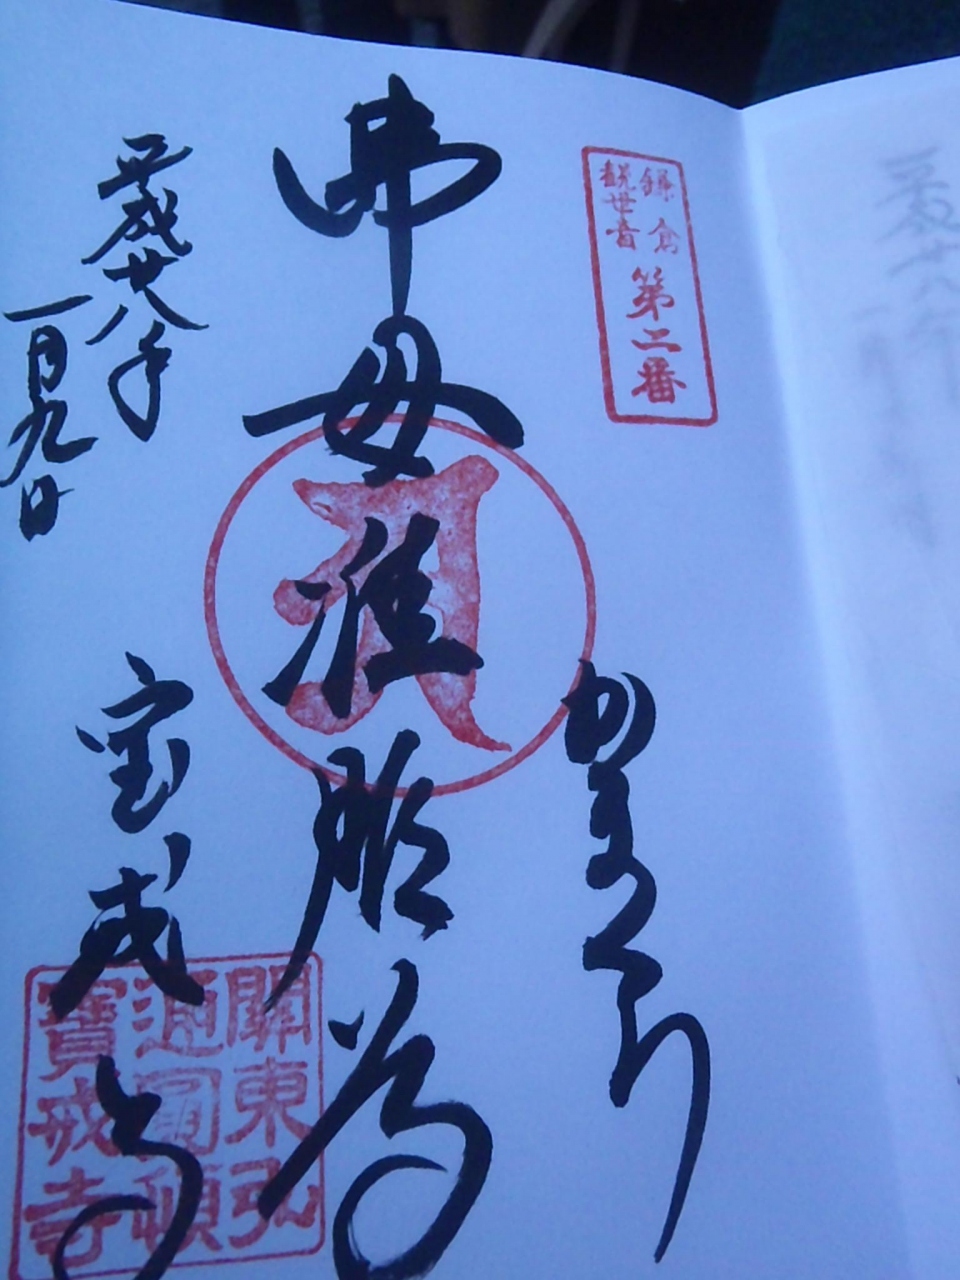 鎌倉
観世音
第二番
かまくら
佛母准胝尊
平成廿八年
一月九日
宝戒寺
關東弘
通圓頓
寶戒寺